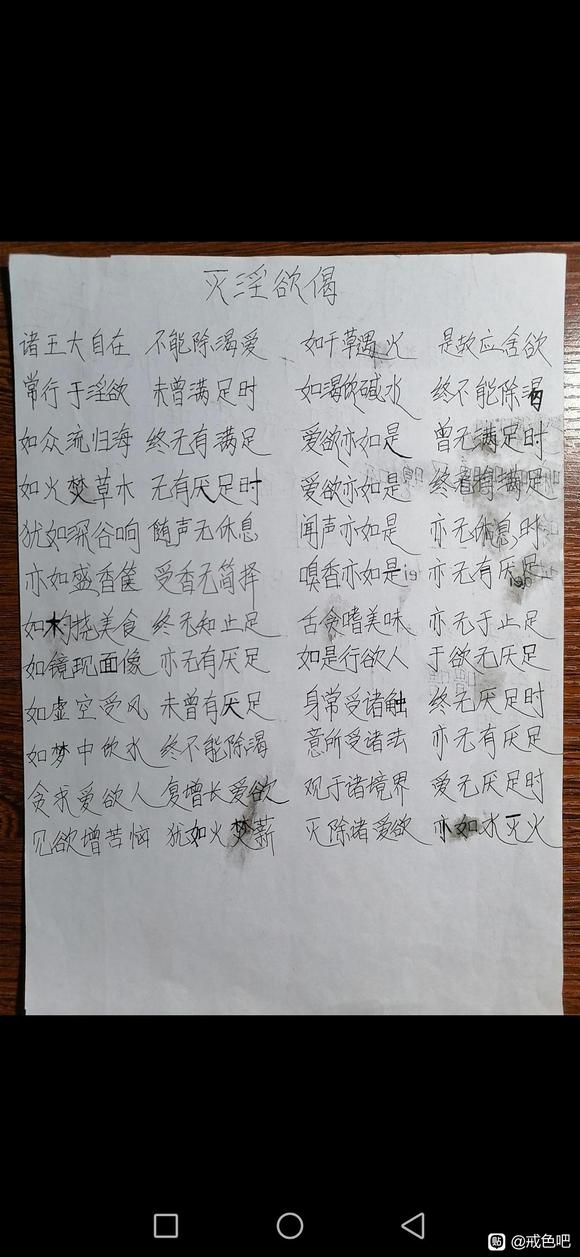 灭淫欲偈
诸王大自在 不能除渴爱 如干草遇火 是故应舍欲
常行于淫欲 未曾满足时 如渴饮碱水 终不能除渴
如众流归海 终无有满足 爱欲亦如是 曾无满足时
如火焚草木 无有厌足时 爱欲亦如是 终者有满足
犹如深谷响 随声无休息 闻声亦如是 亦无休息时
亦如盛香箧 受香无简择 嗅香亦如是 亦无有厌足
如杓挠美食 终无知止足 舌贪嗜美味 亦无于止足
如镜现面像 亦无有厌足 如是行欲人 于欲无厌足
如虚空受风 未曾有厌足 身常受诸触 终无厌足时
如梦中饮水 终不能除渴 意所受诸法 亦无有厌足
贪求爱欲人 复增长爱欲 观于诸境界 爱无厌足时
见欲增苦恼 犹如火焚薪 灭除诸爱欲 亦如水灭火
贴 @戒色吧